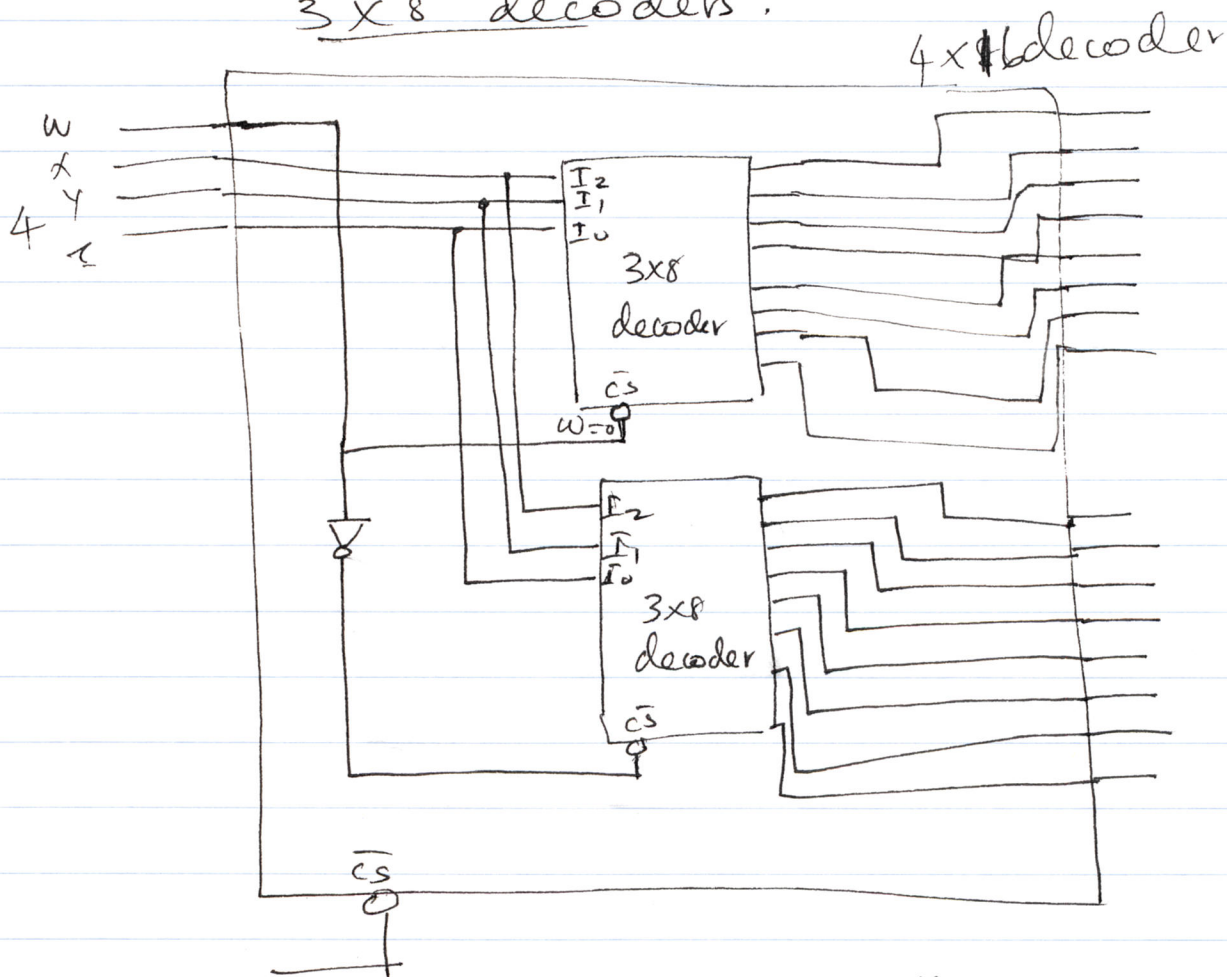 3 x 8 decoders.
4x16decoder
W
X
Y
4
I₂
I₁
I₀
3x8
decoder
C̅S̅
W=0
I₂
I₁
I₀
3x8
decoder
C̅S̅
C̅S̅